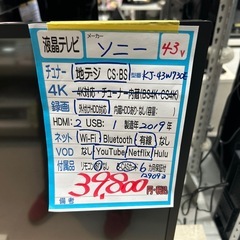 液晶テレビ メーカー ソニー 43V
チューナー 地デジ CS・BS 型番 KJ-43W730E
4K 4K対応・チューナー内蔵(BS4K・CS4K)
録画 外付けHDD対応 内蔵HDDあり・なし(容量: )
HDMI: 2 USB: 1 製造 2019年
ネット Wi-Fi Bluetooth 有線 なし
VOD なし YouTube Netflix Hulu
付属品 リモコン
39,800
備考